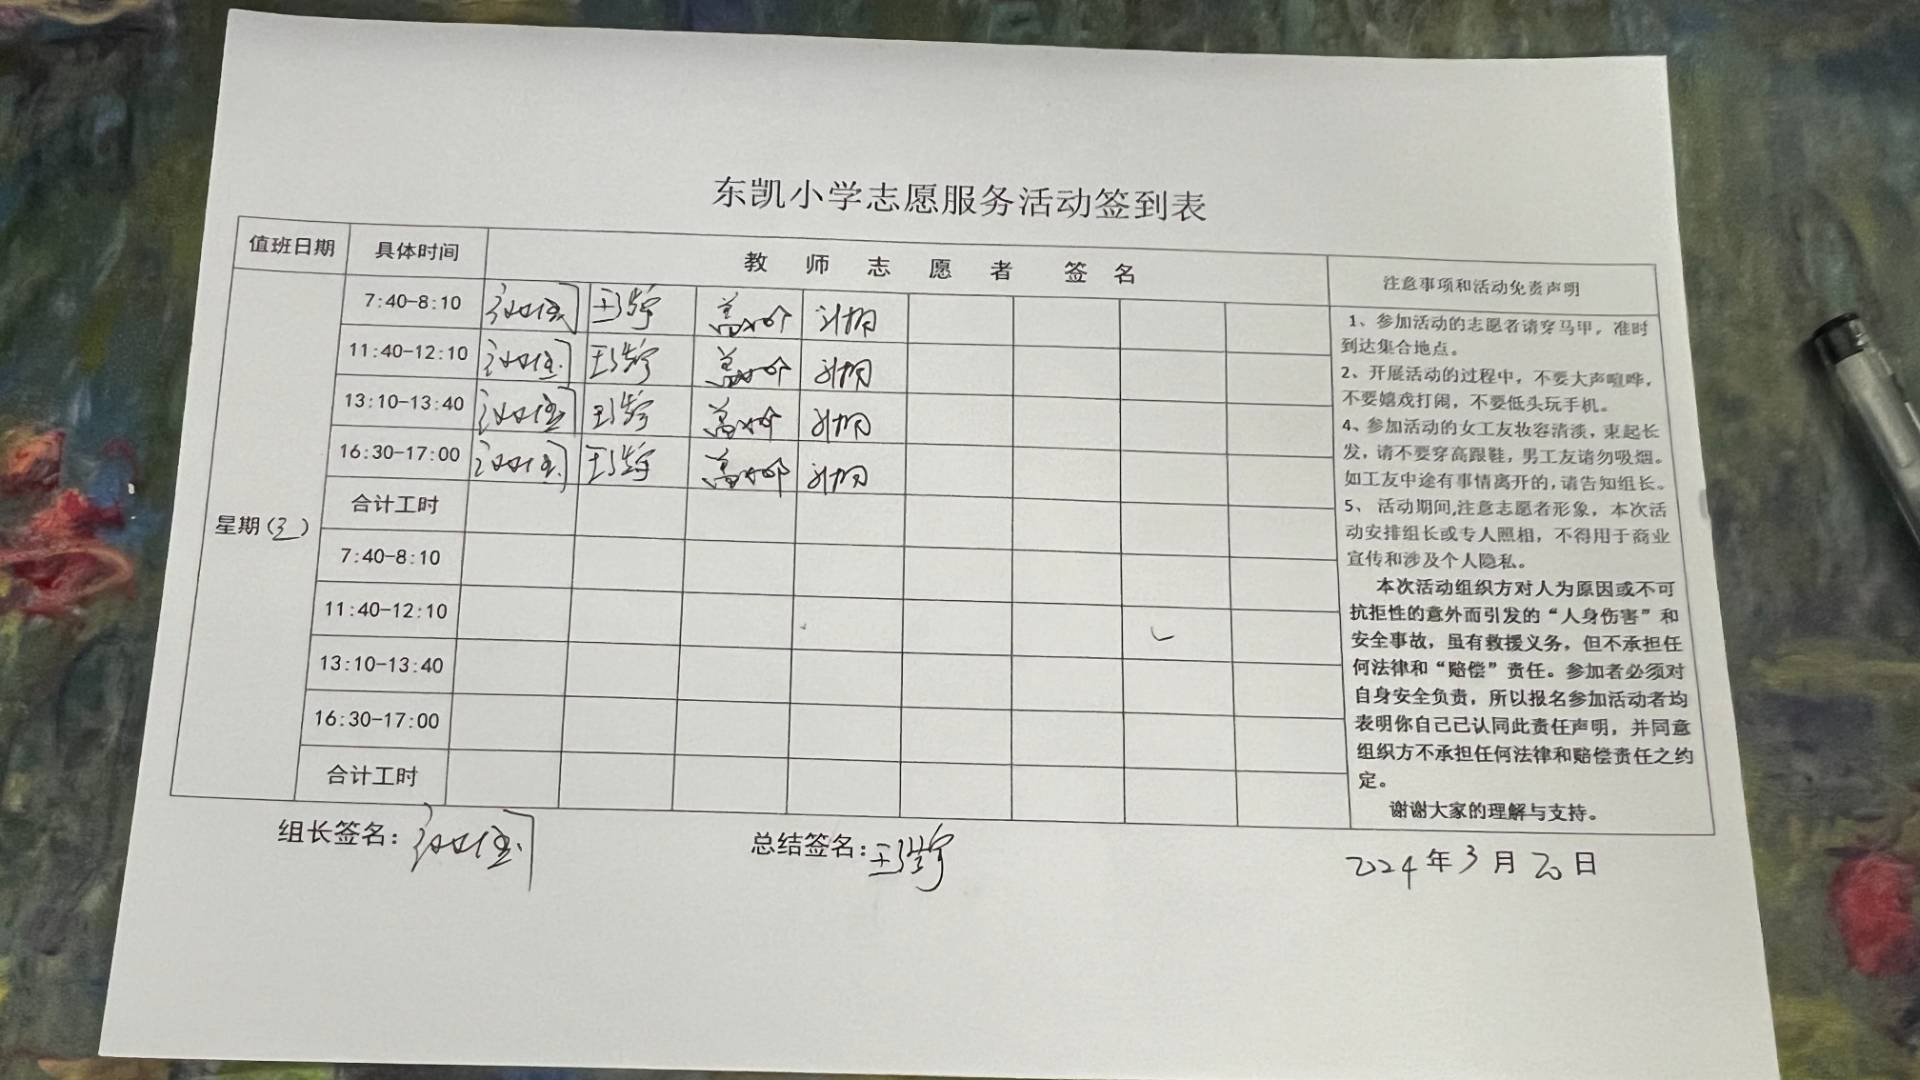 东凯小学志愿服务活动签到表
值班日期 具体时间 教师志愿者签名 注意事项和活动免责声明
星期(3)
7:40-8:10 王浩宇
11:40-12:10 王浩宇
13:10-13:40 王浩宇
16:30-17:00 王浩宇
合计工时
7:40-8:10
11:40-12:10
13:10-13:40
16:30-17:00
合计工时
1、参加活动的志愿者请穿马甲，准时
到达集合地点。
2、开展活动的过程中，不要大声喧哗，
不要嬉戏打闹，不要低头玩手机。
4、参加活动的女工友妆容清淡，束起长
发，请不要穿高跟鞋，男工友请勿吸烟。
如工友中途有事情离开的,请告知组长。
5、活动期间,注意志愿者形象，本次活
动安排组长或专人照相，不得用于商业
宣传和涉及个人隐私。
本次活动组织方对人为原因或不可
抗拒性的意外而引发的“人身伤害”和
安全事故，虽有救援义务，但不承担任
何法律和“赔偿”责任。参加者必须对
自身安全负责，所以报名参加活动者均
表明你自己已认同此责任声明，并同意
组织方不承担任何法律和赔偿责任之约
定。
谢谢大家的理解与支持。
组长签名: 总结签名:王浩宇
2024年3月20日